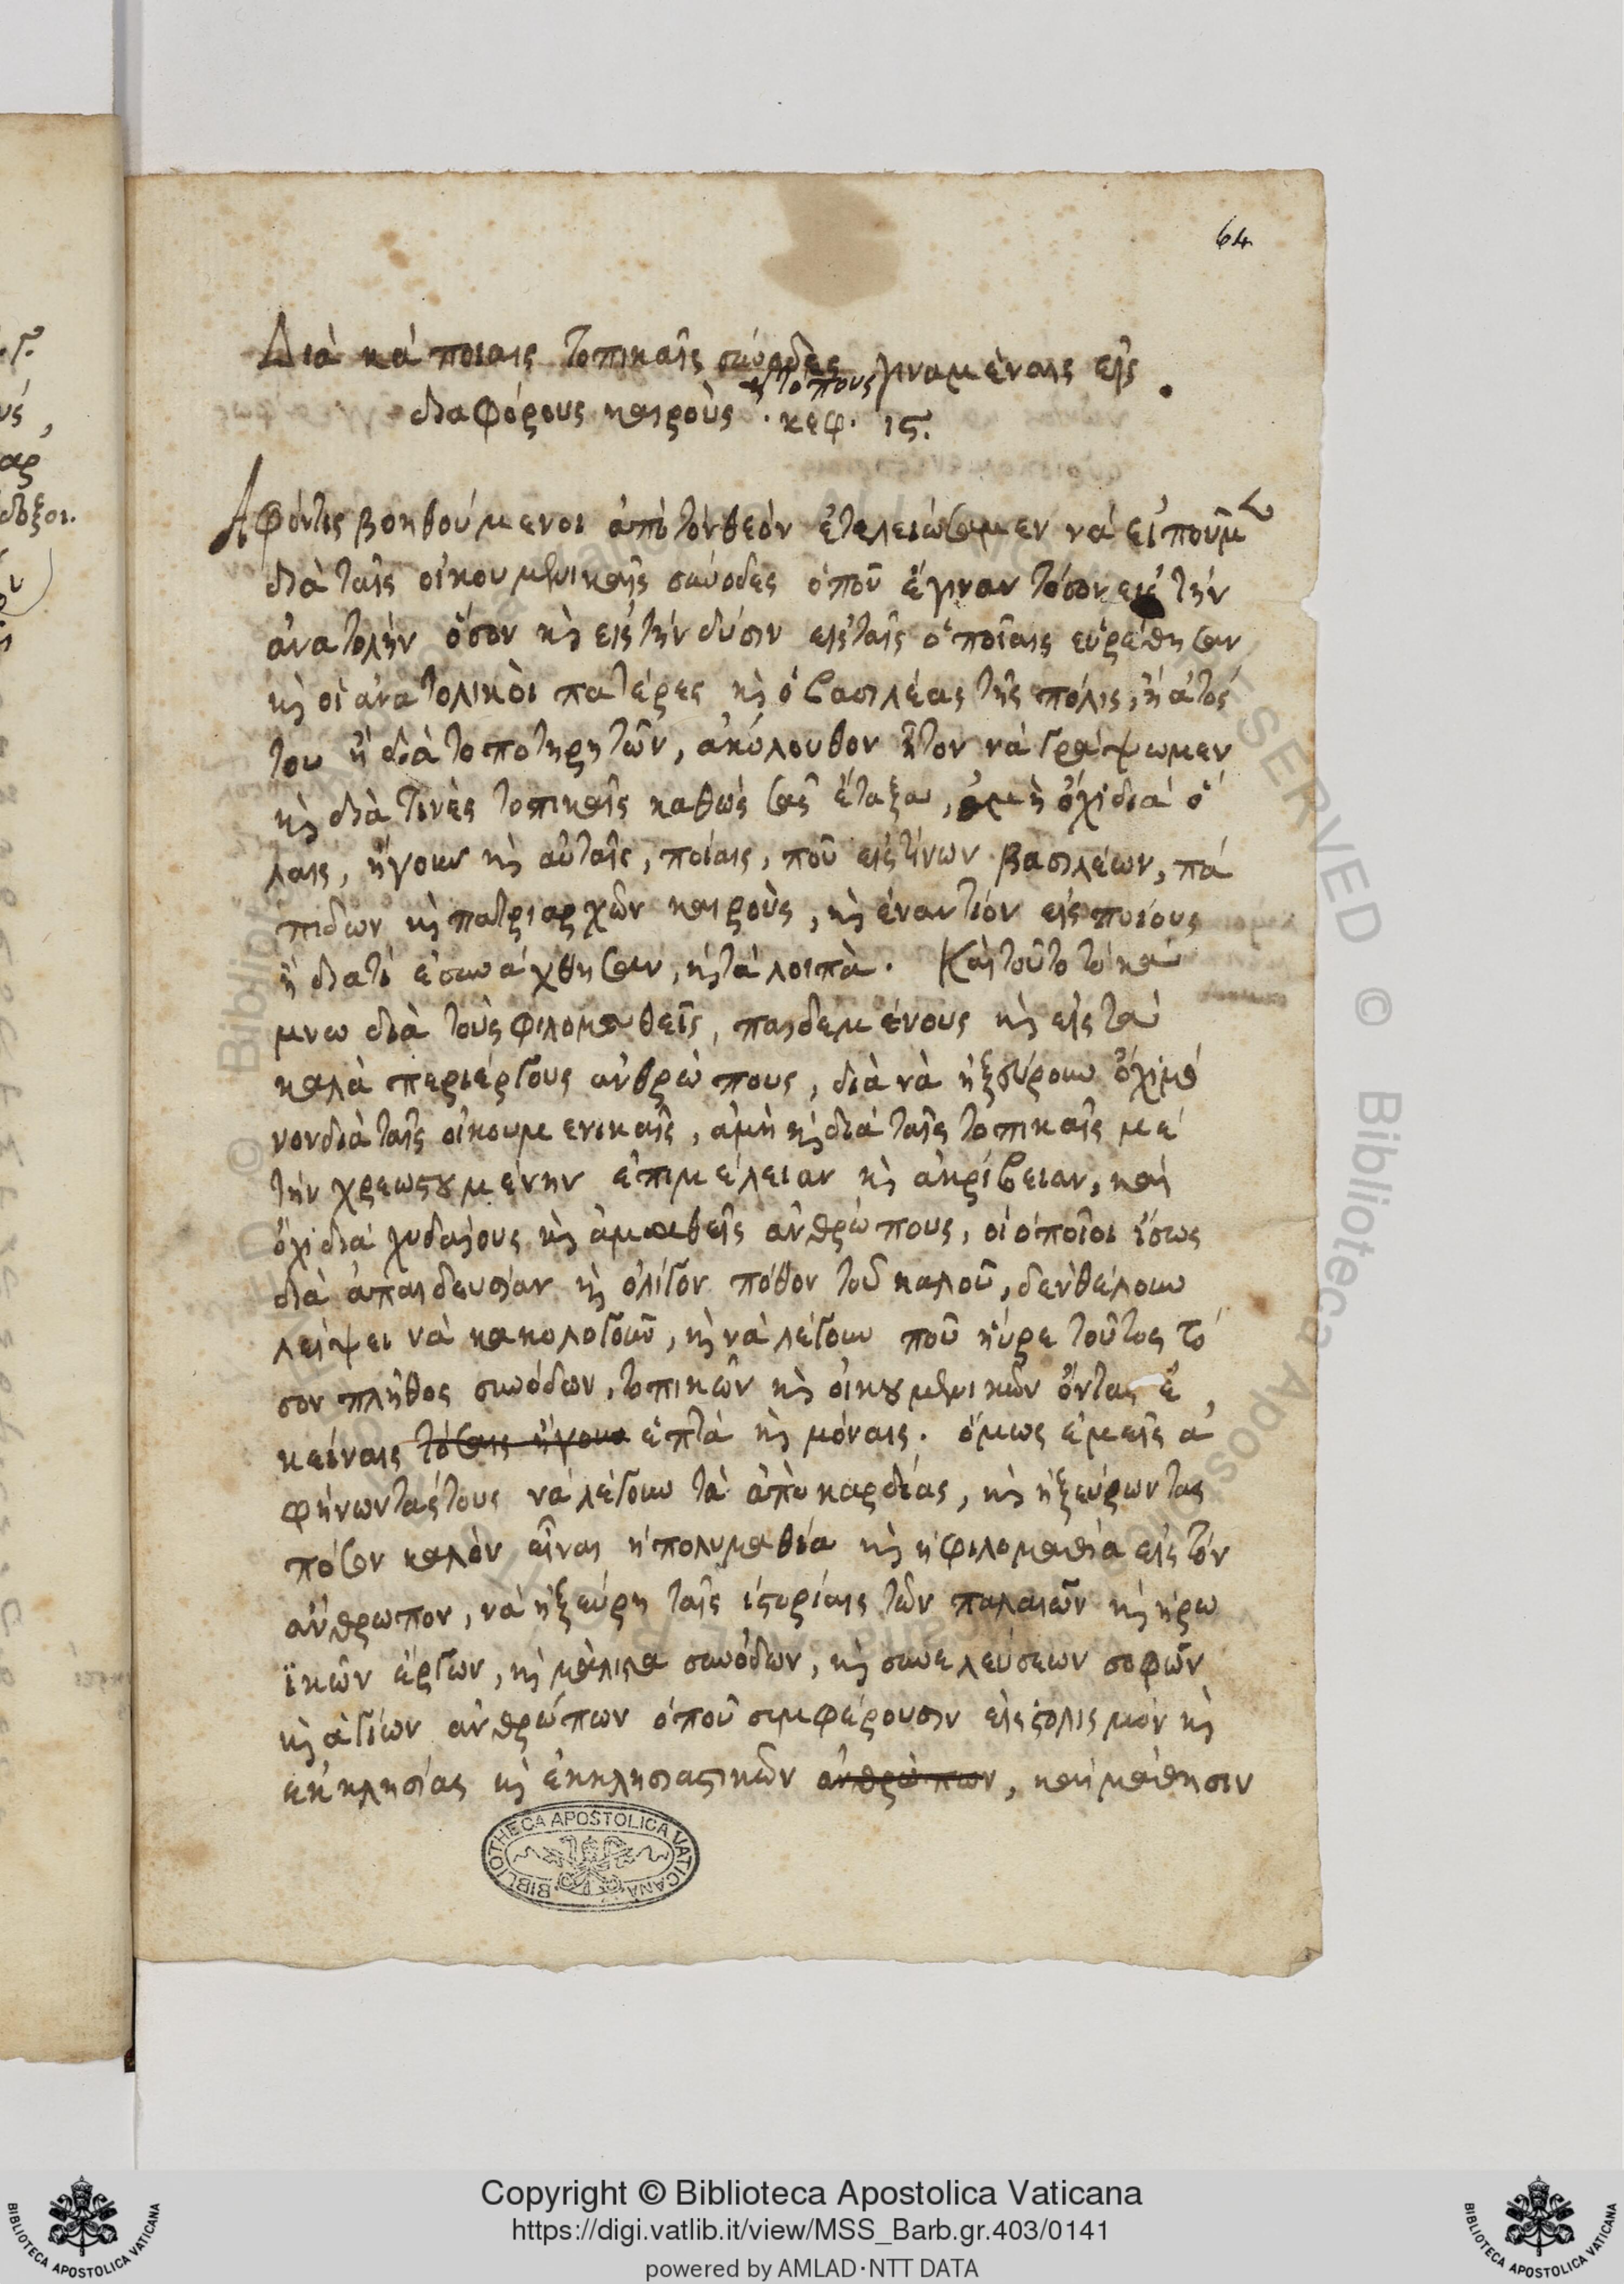 64
Διὰ κάποιαις τοπικαῖς σύνοδες γιναμέναις εἰς
διαφόρους καιροὺς κ τόπους · κεφ. ις.
Ἀφόντις βοηθούμενοι ἀπὸ τὸν θεὸν ἐτελειώσαμεν νὰ εἰποῦμεν
διὰ ταῖς οἰκουμενικαῖς σύνοδες ὁποῦ ἔγιναν τόσον εἰς τὴν
ἀνατολὴν ὅσον κὶ εἰς τὴν δύσιν εἰς ταῖς ὁποῖαις εὑρέθησαν
κὶ οἱ ἀνατολικοὶ πατέρες κὶ ὁ βασιλέας τῆς πόλις, ἢ ἀτός
του ἢ διὰ τοποτηρητῶν, ἀκόλουθον ἦτον νὰ γράψωμεν
κὶ διὰ τινὲς τοπικαῖς καθὼς σᾶς ἔταξα, ἀμὴ ὄχι διὰ ὅ
λαις, ἤγουν κὶ αὐταῖς, ποίαις, ποῦ εἰς τίνων βασιλέων, πά
πιδων κὶ πατριαρχῶν καιροὺς, κὶ ἐναντίον εἰς ποίους
ἢ διατί ἐσυνάχθησαν, κὶ τὰ λοιπὰ. Καὶ τοῦτο τὸ κά
μνω διὰ τοὺς φιλομαθεῖς, παιδεμένους κὶ εἰς τὰ
καλὰ περιέργους ἀνθρώπους, διὰ νὰ ἠξεύρουν ὄχι μό
νον διὰ ταῖς οἰκουμενικαῖς, ἀμὴ κὶ διὰ ταῖς τοπικαῖς μὲ
τὴν χρεωστουμένην ἐπιμέλειαν κὶ ἀκρίβειαν, καὶ
ὄχι διὰ χυδαίους κὶ ἀμαθεῖς ἀνθρώπους, οἱ ὁποῖοι ἴσως
διὰ ἀπαιδευσίαν κὶ ὀλίγον πόθον τοῦ καλοῦ, δὲν θέλουν
λείψει νὰ κακολογοῦν, κὶ νὰ λέγουν ποῦ ηὗρε τοῦτος τό
σον πλῆθος συνόδων, τοπικῶν κὶ οἰκουμενικῶν ὄντας ἐ
κείναις τόσαις ἤγουν ἑπτὰ κὶ μόναις. ὅμως ἐμεῖς ἀ
φήνωντάς τους νὰ λέγουν τὰ ἀπὸ καρδίας, κὶ ἠξεύρωντας
πόσον καλὸν εἶναι ἡ πολυμαθία κὶ ἡ φιλομαθία εἰς τὸν
ἄνθρωπον, νὰ ἠξεύρη ταῖς ἱστορίαις τῶν παλαιῶν κὶ ἡρω
ϊκῶν ἔργων, κὶ μάλιστα συνόδων, κὶ συνελεύσεων σοφῶν
κὶ ἁγίων ἀνθρώπων ὁποῦ συμφέρουσιν εἰς στολισμὸν κὶ
ἐκκλησίας κὶ ἐκκλησιαστικῶν ἀνθρώπων, καὶ μάθησιν
BIBLIOTHECA APOSTOLICA VATICANA
Copyright © Biblioteca Apostolica Vaticana
https://digi.vatlib.it/view/MSS_Barb.gr.403/0141
powered by AMLAD·NTT DATA